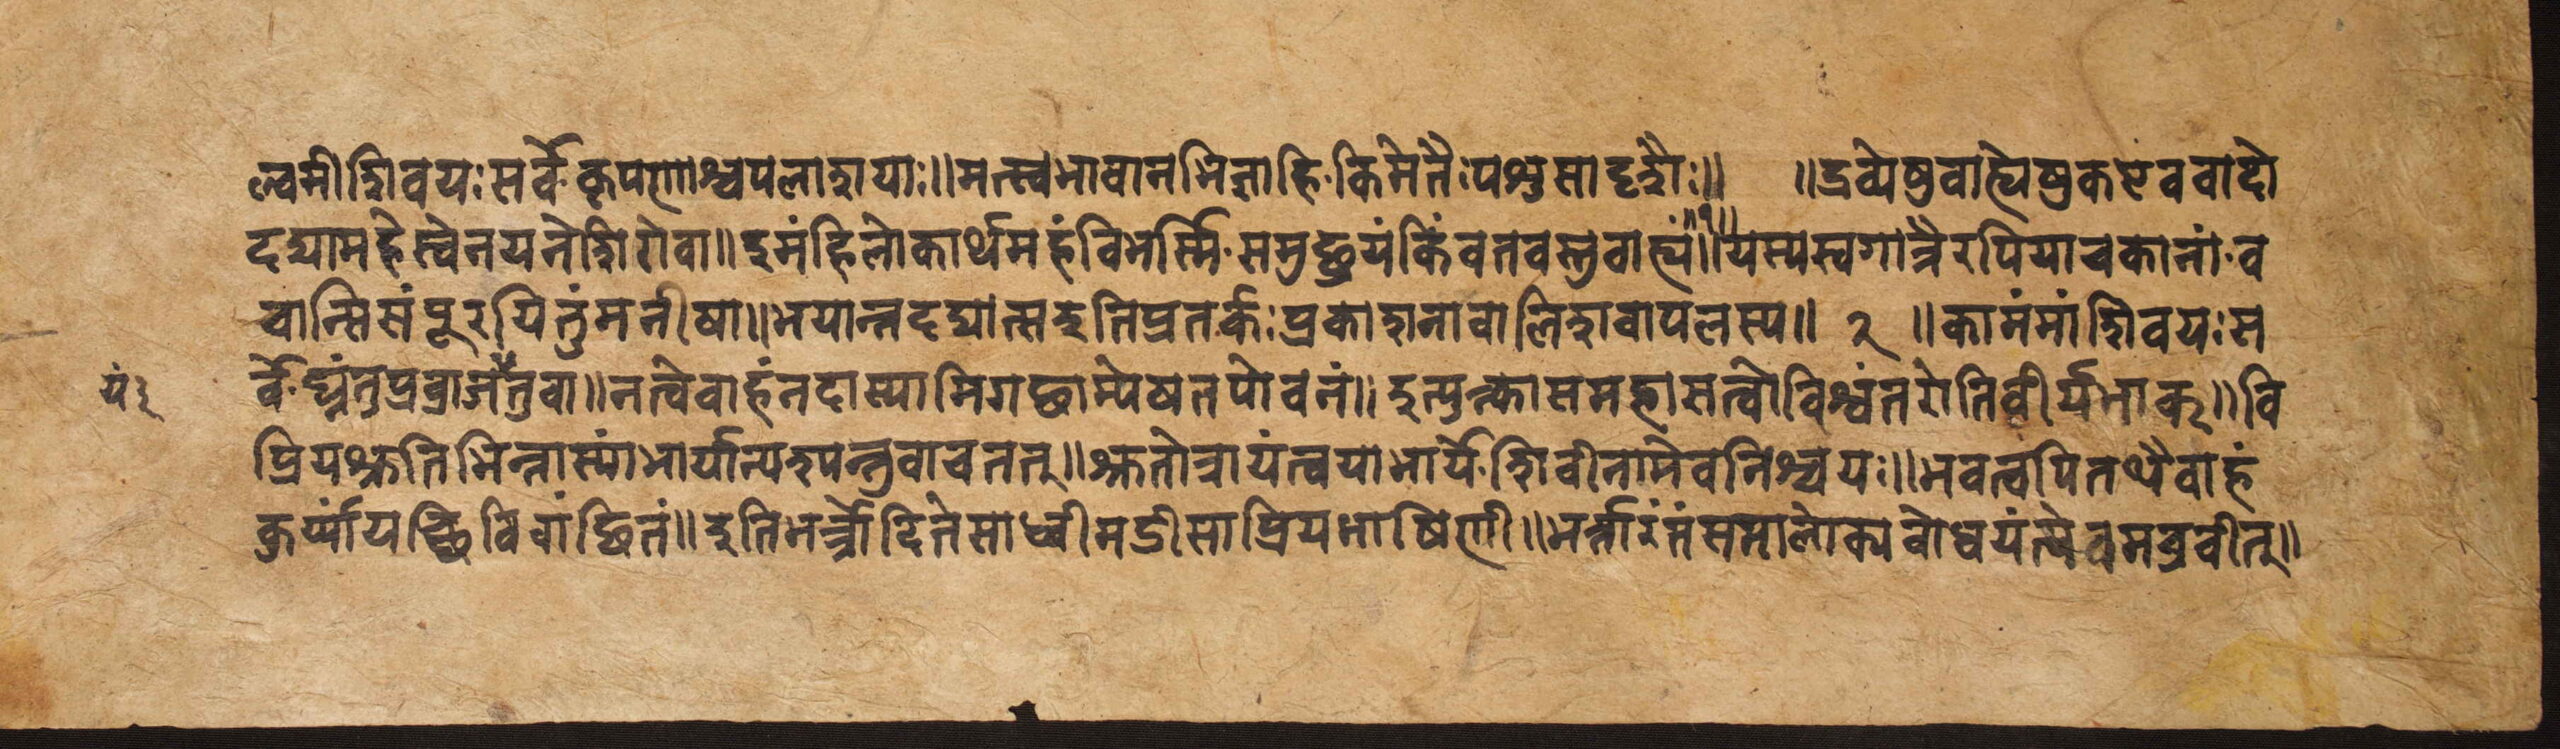 ल्वमी शिवयः सर्वे कृपणाश्चपलाशयाः॥ मत्स्वभावानभिज्ञा हि किमेतैः पशुसादृशैः॥ ॥ द्रव्येषु वाह्येषु क एव वादो
दद्यामहं स्वे नयने शिरो वा॥ इमं हि लोकार्थमहं विभर्म्मि समुछ्रयं किं वत वस्तु वाह्यं॥ १॥ यस्य स्वगात्रैरपि याचकानां व
चान्सि संपूरयितुं मनीषा॥ भयान्न दद्यात्स इति प्रतर्कः प्रकाशना वालिशचापलस्य॥ २ ॥ कामं मां शिवयः स
र्वे घ्नंतु प्रव्राजंतु वा॥ नत्वेवाहं न दास्यामि गछाम्येष तपोवनं॥ इत्युत्का स महासत्वो विश्वंतरोतिवीर्यभाक्॥ वि
यं ३
प्रियश्रुतिभिन्नास्यां भार्यान्यरूपन्तुवाच तत्॥ श्रुतोत्रायं त्वया भार्ये शिवीनामेव निश्चयः॥ भवत्वपि तथैवाहं
कुर्य्यां यच्छिविवांछितं॥ इति भर्त्रोदिते साध्वी मद्री सा प्रियभाषिणी॥ भर्त्तारं तं समालोक्य वोधयंत्येवमव्रवीत्॥